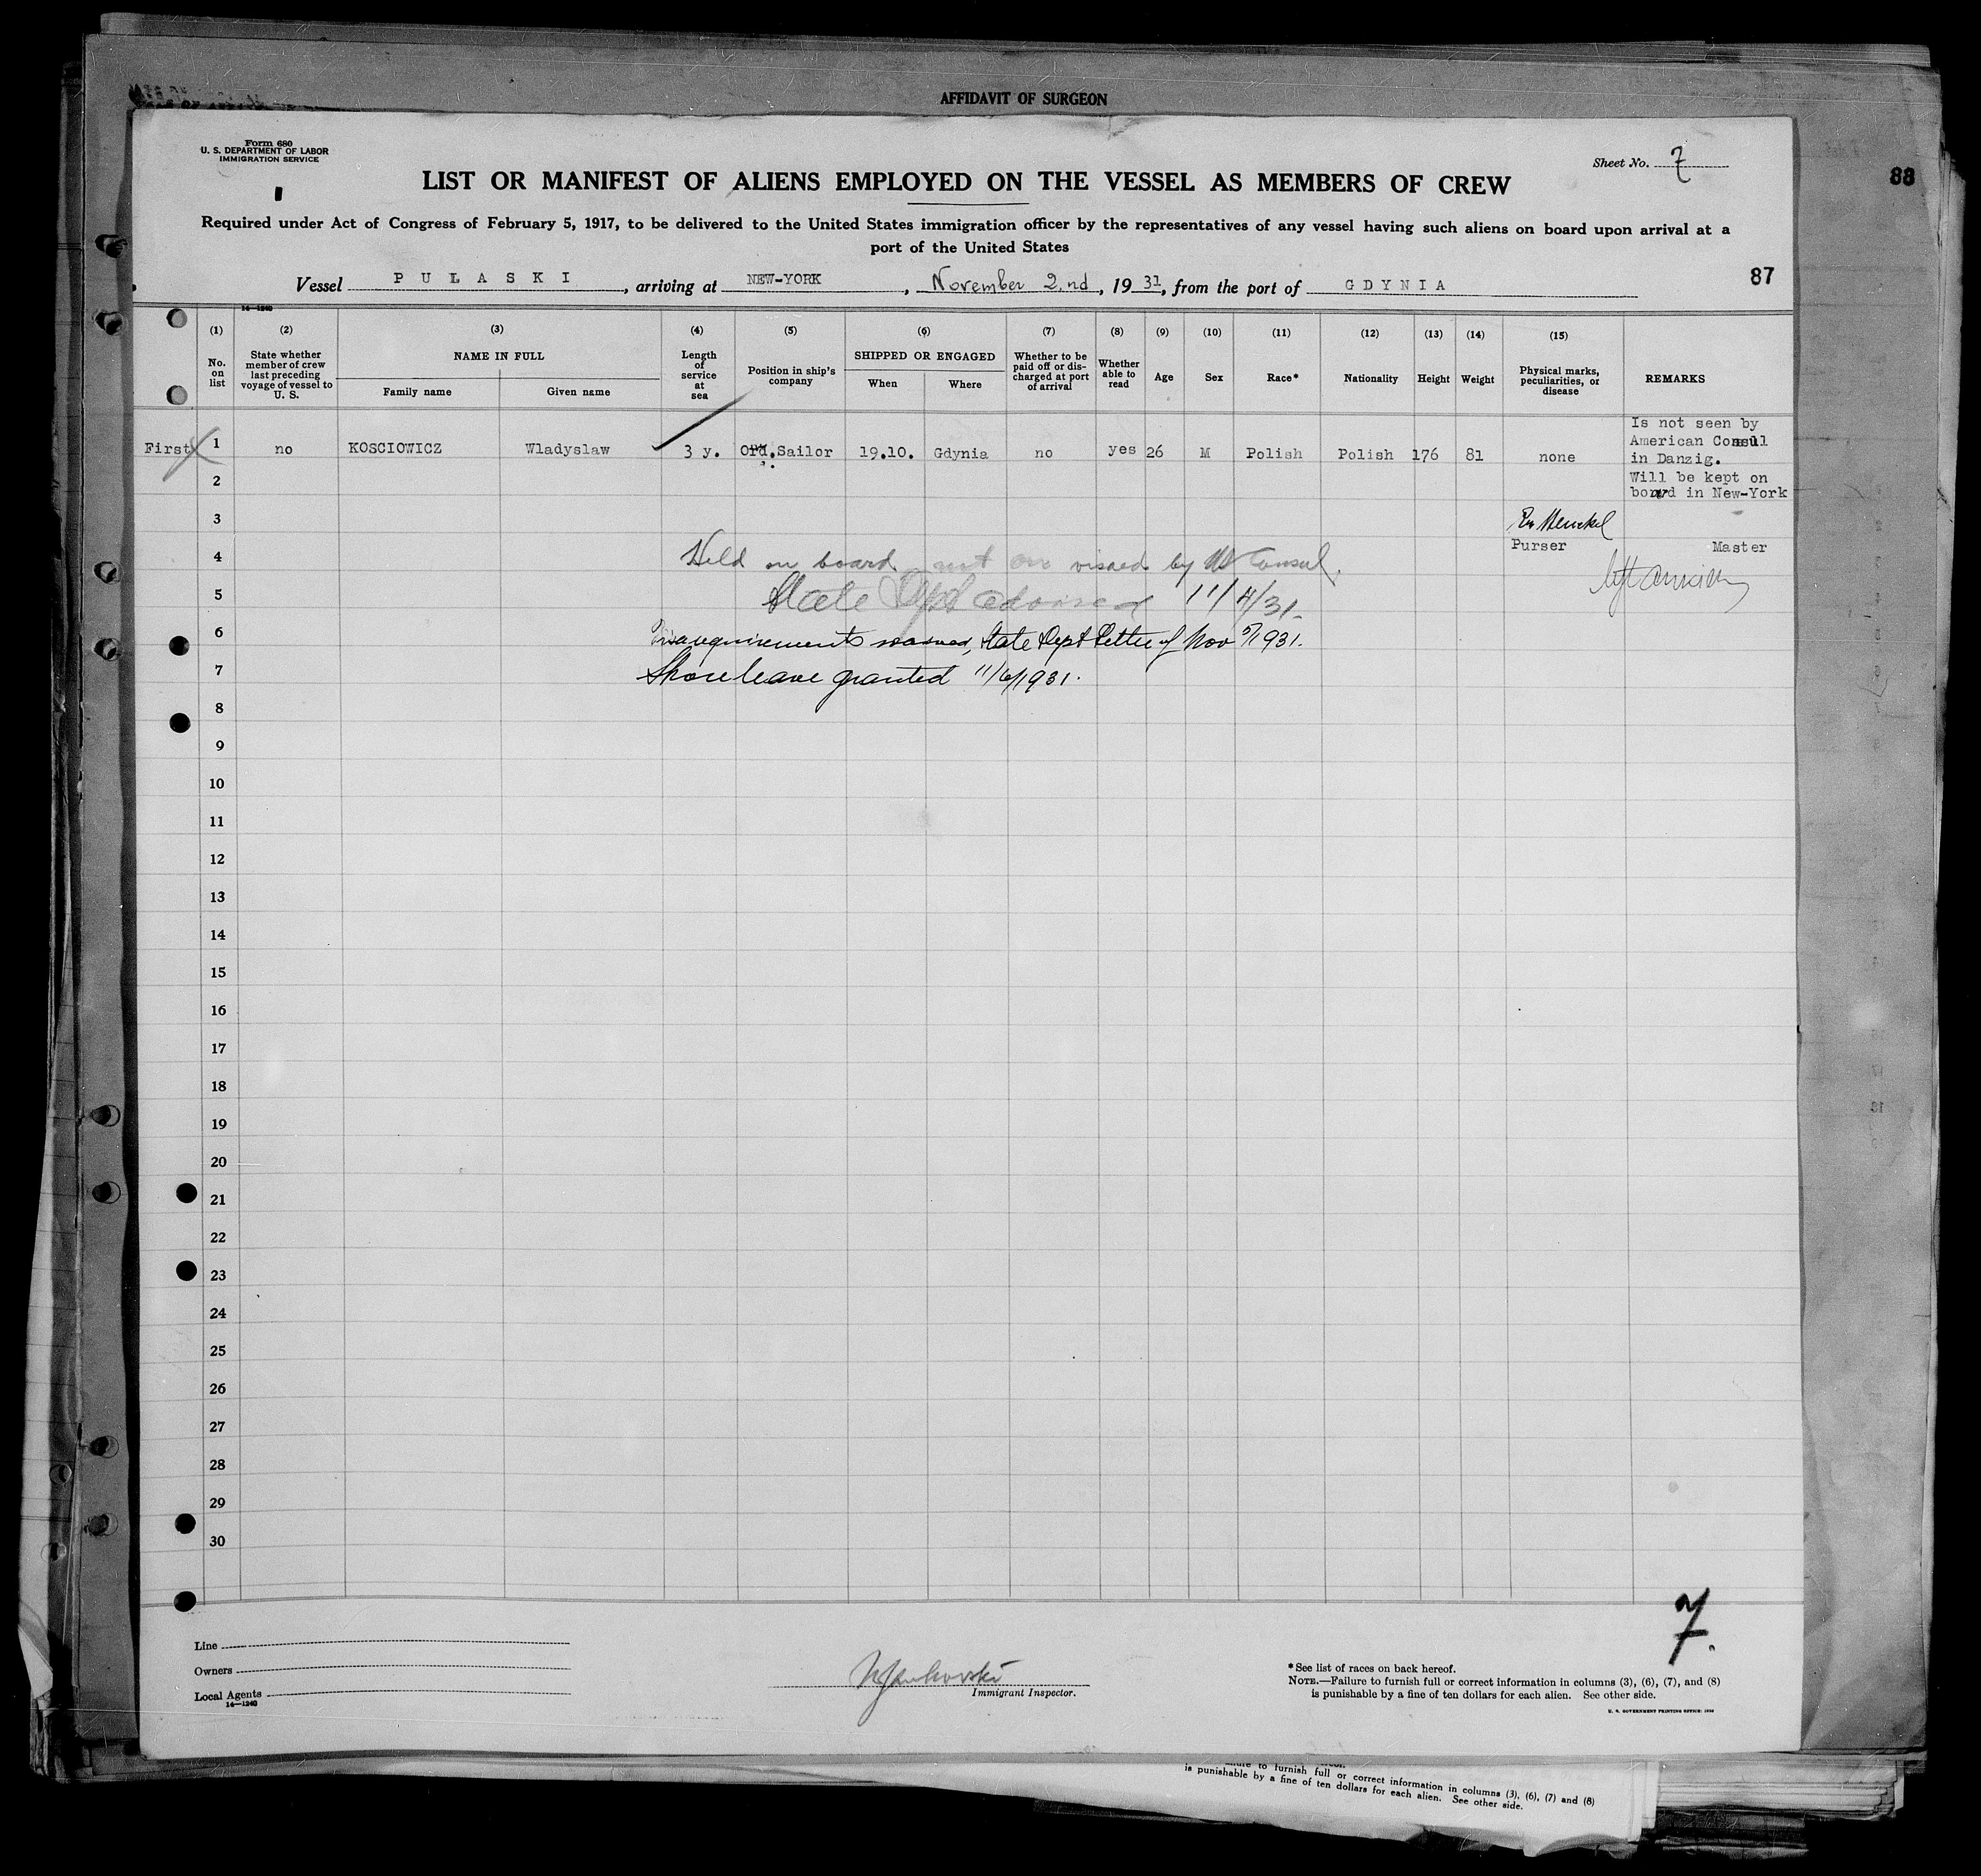 AFFIDAVIT OF SURGEON
Form 680
U. S. DEPARTMENT OF LABOR
IMMIGRATION SERVICE
Sheet No. 7
88
LIST OR MANIFEST OF ALIENS EMPLOYED ON THE VESSEL AS MEMBERS OF CREW
Required under Act of Congress of February 5, 1917, to be delivered to the United States immigration officer by the representatives of any vessel having such aliens on board upon arrival at a
port of the United States
87
Vessel PUŁASKI, arriving at NEW-YORK, November 2.nd, 1931, from the port of GDYNIA
14—1240
(1) (2) (3) (4) (5) (6) (7) (8) (9) (10) (11) (12) (13) (14) (15)
No. on list
State whether member of crew last preceding voyage of vessel to U. S.
NAME IN FULL
Family name
Given name
Length of service at sea
Position in ship's company
SHIPPED OR ENGAGED
When
Where
Whether to be paid off or discharged at port of arrival
Whether able to read
Age
Sex
Race*
Nationality
Height
Weight
Physical marks, peculiarities, or disease
REMARKS
First 1 no KOSCIOWICZ Wladyslaw 3 y. Ord.Sailor 19.10. Gdynia no yes 26 M Polish Polish 176 81 none
Is not seen by
American Consul
in Danzig.
Will be kept on
board in New-York
2
3
Purser Master
4 Held on board not on visaed by US Consul.
5 State Dept advised 11/4/31.
6 requirements waived, State Dept Letter of Nov 5/1931.
7 Shore leave granted 11/6/1931.
8
9
10
11
12
13
14
15
16
17
18
19
20
21
22
23
24
25
26
27
28
29
30
7.
Line
Owners
Local Agents
14—1240
Immigrant Inspector.
*See list of races on back hereof.
NOTE.—Failure to furnish full or correct information in columns (3), (6), (7), and (8)
is punishable by a fine of ten dollars for each alien. See other side.
U. S. GOVERNMENT PRINTING OFFICE: 1930
to furnish full or correct information in columns (3), (6), (7) and (8)
is punishable by a fine of ten dollars for each alien. See other side.